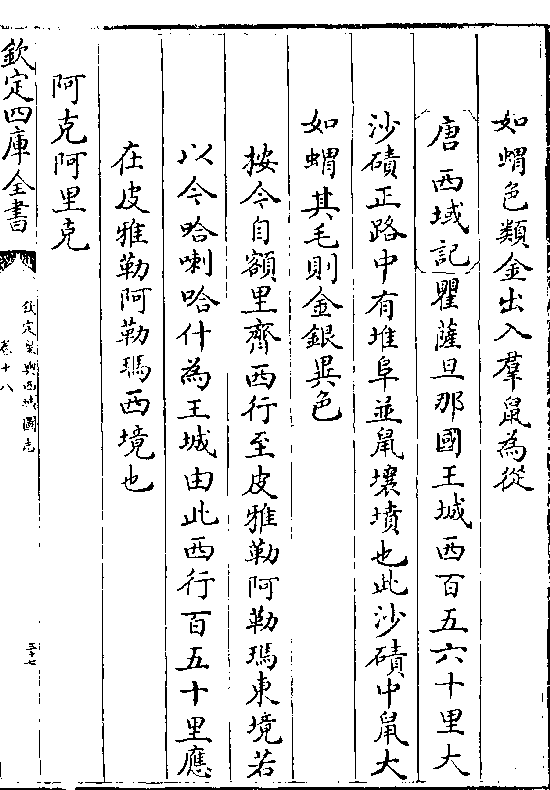 如蝟色類金出入羣鼠為從
唐西域記瞿薩旦那國王城西百五六十里大
沙磧正路中有堆阜並鼠壤墳也此沙磧中鼠大
如蝟其毛則金銀異色
按今自額里齊西行至皮雅勒阿勒瑪東境若
以今哈喇哈什為王城由此西行百五十里應
在皮雅勒阿勒瑪西境也
阿克阿里克
欽定四庫全書
欽定皇輿西域圖志
卷十八
三十七